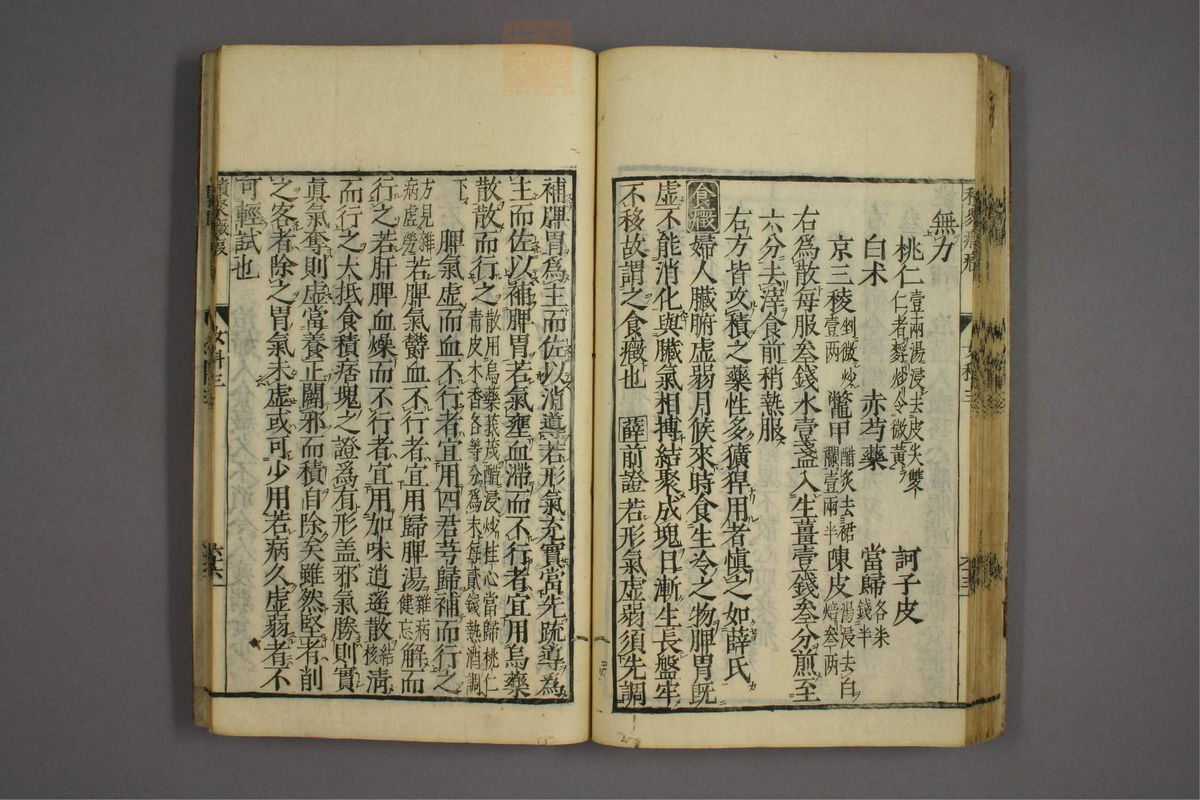 無力
桃仁 壹兩湯浸去皮尖雙仁者麩炒令微黃 訶子皮
白朮 赤芍藥 當歸 各米錢半
京三稜 剉微炒壹两 鼈甲 醋炙去裙襴壹兩半 陳皮 湯浸去白焙叁两
右爲散每服叁錢水壹盞入生薑壹錢叁分煎至
六分去滓食前稍熱服
右方皆攻積之藥性多獷猂用者慎之如薛氏
食癥 婦人臟腑虛弱月候來時食生冷之物脾胃既
虛不能消化與臟氣相搏結聚成塊日漸生長盤牢
不移故謂之食癥也 薛 前證若形氣虛弱須先調
補脾胃爲主而佐以消導若形氣充實當先疏導爲
主而佐以補脾胃若氣壅血滯而不行者宜用烏藥
散散而行之 散用烏藥莪茂醋浸炒桂心當歸桃仁青皮木香各等分爲末每貳錢熱酒調
下 若脾氣虛而血不行者宜用四君芎歸補而行之
方見雜病虛勞 若脾氣鬱血不行者宜用歸脾湯 雜病健忘 解而
行之若肝脾血燥而不行者宜用加味逍遙散 結核 清
而行之大抵食積痞塊之證爲有形盖邪氣勝則實
眞氣奪則虛當養正闢邪而積自除矣雖然堅者削
之客者除之胃氣未虛或可少用若病久虛弱者不
可輕試也
女科三